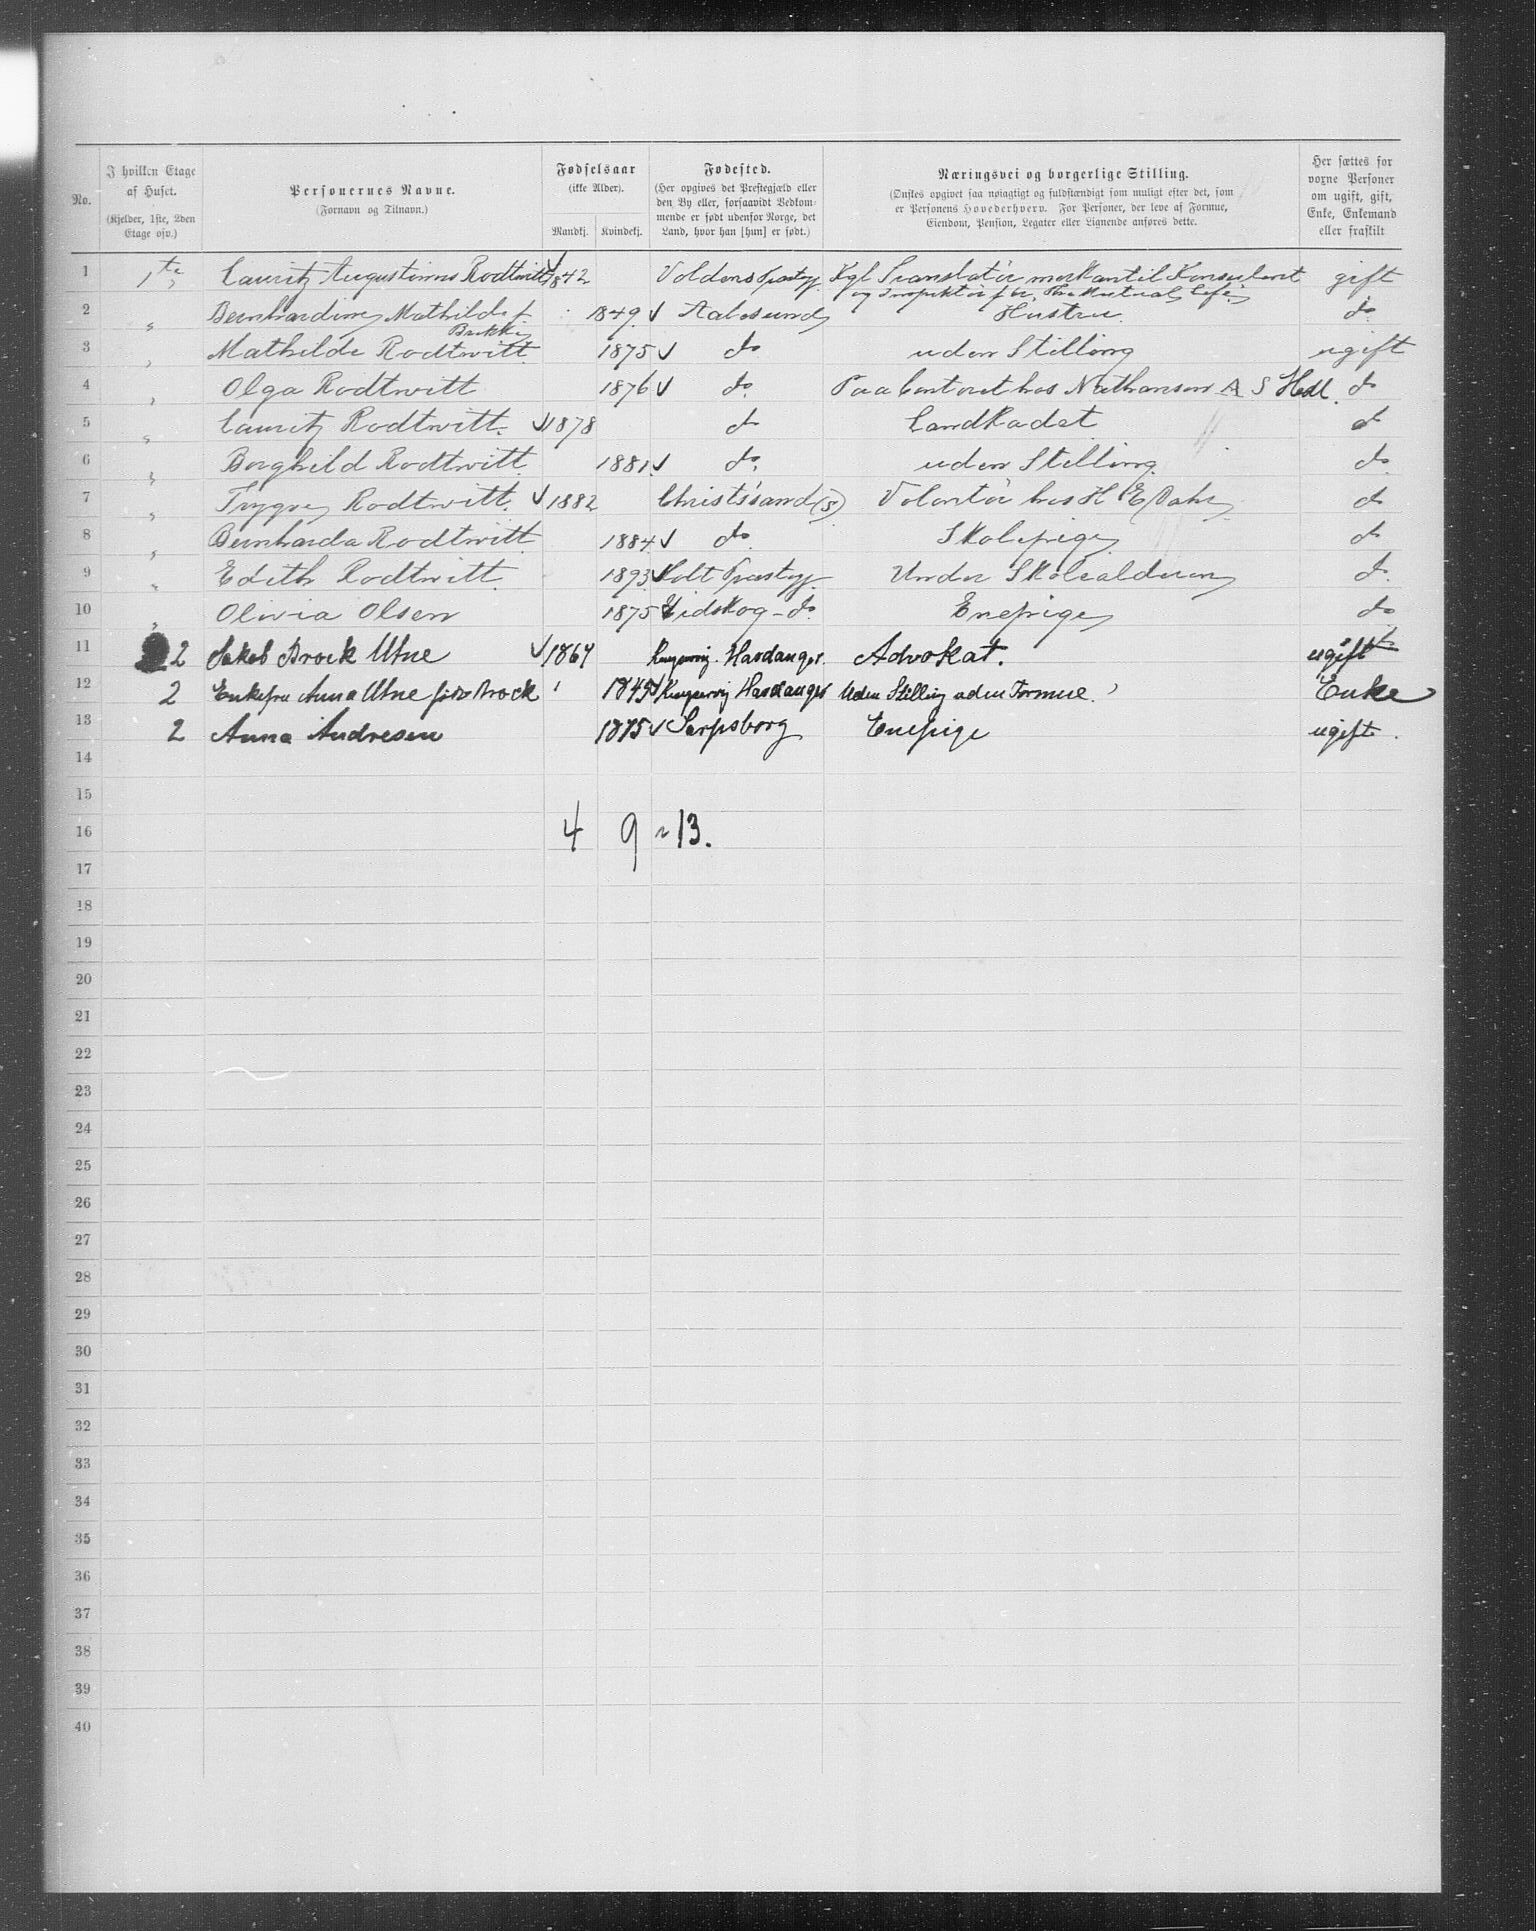 No.
I hvilken Etage af Huset.
(Kjelder, 1ste, 2den Etage osv.)
Personernes Navne.
(Fornavn og Tilnavn.)
Fødselsaar
(ikke Alder).
Mandkj.
Kvindekj.
Fødested.
(Her opgives det Prestegjæld eller
den By eller, forsaavidt Vedkom-
mende er født udenfor Norge, det
Land, hvor han [hun] er født.)
Næringsvei og borgerlige Stilling.
(Ønskes opgivet saa nøiagtigt og fuldstændigt som muligt efter det, som
er Personens Hovederhverv. For Personer, der leve af Formue,
Eiendom, Pension, Legater eller Lignende anføres dette.
Her sættes for
voxne Personer
om ugift, gift,
Enke, Enkemand
eller fraskilt
1 1te Lauritz Augustinus Rodtwitt 1842 Voldens Præstegj. Kgl Translatör merkantil Konsulent gift
og Inspektör for The Mutual Life
2 " Bernhardine Mathilde f. 1849 Aalesund Hustru do
Brekke
3 " Mathilde Rodtwitt 1875 do uden Stilling ugift
4 " Olga Rodtwitt 1876 do Paa Contoret hos Nathansen A S Hall. do
5 " Lauritz Rodtwitt 1878 do Landkadet do
6 " Borghild Rodtwitt 1881 do. uden Stilling do
7 " Trygve Rodtwitt. 1882 Christ'sand (S) Volontör hos H E Dahr do
8 " Bernharda Rodtwitt 1884 do Skolepige do
9 " Edith Rodtwitt 1893 Holt Præstegj. Under Skolealderen do
10 " Olivia Olsen 1875 Vidskog - do. Enepige do
11 2 Jakob Brock Utne 1867 Kingservig. Hardanger. Advokat. ugift
12 2 Enkefru Anna Utne født Brock 1845 Kingservig Hardanger Uden Stilling uden Formue. Enke
13 2 Anna Andresen 1875 Sarpsborg Enepige ugift.
14
15
16 4 9 = 13.
17
18
19
20
21
22
23
24
25
26
27
28
29
30
31
32
33
34
35
36
37
38
39
40